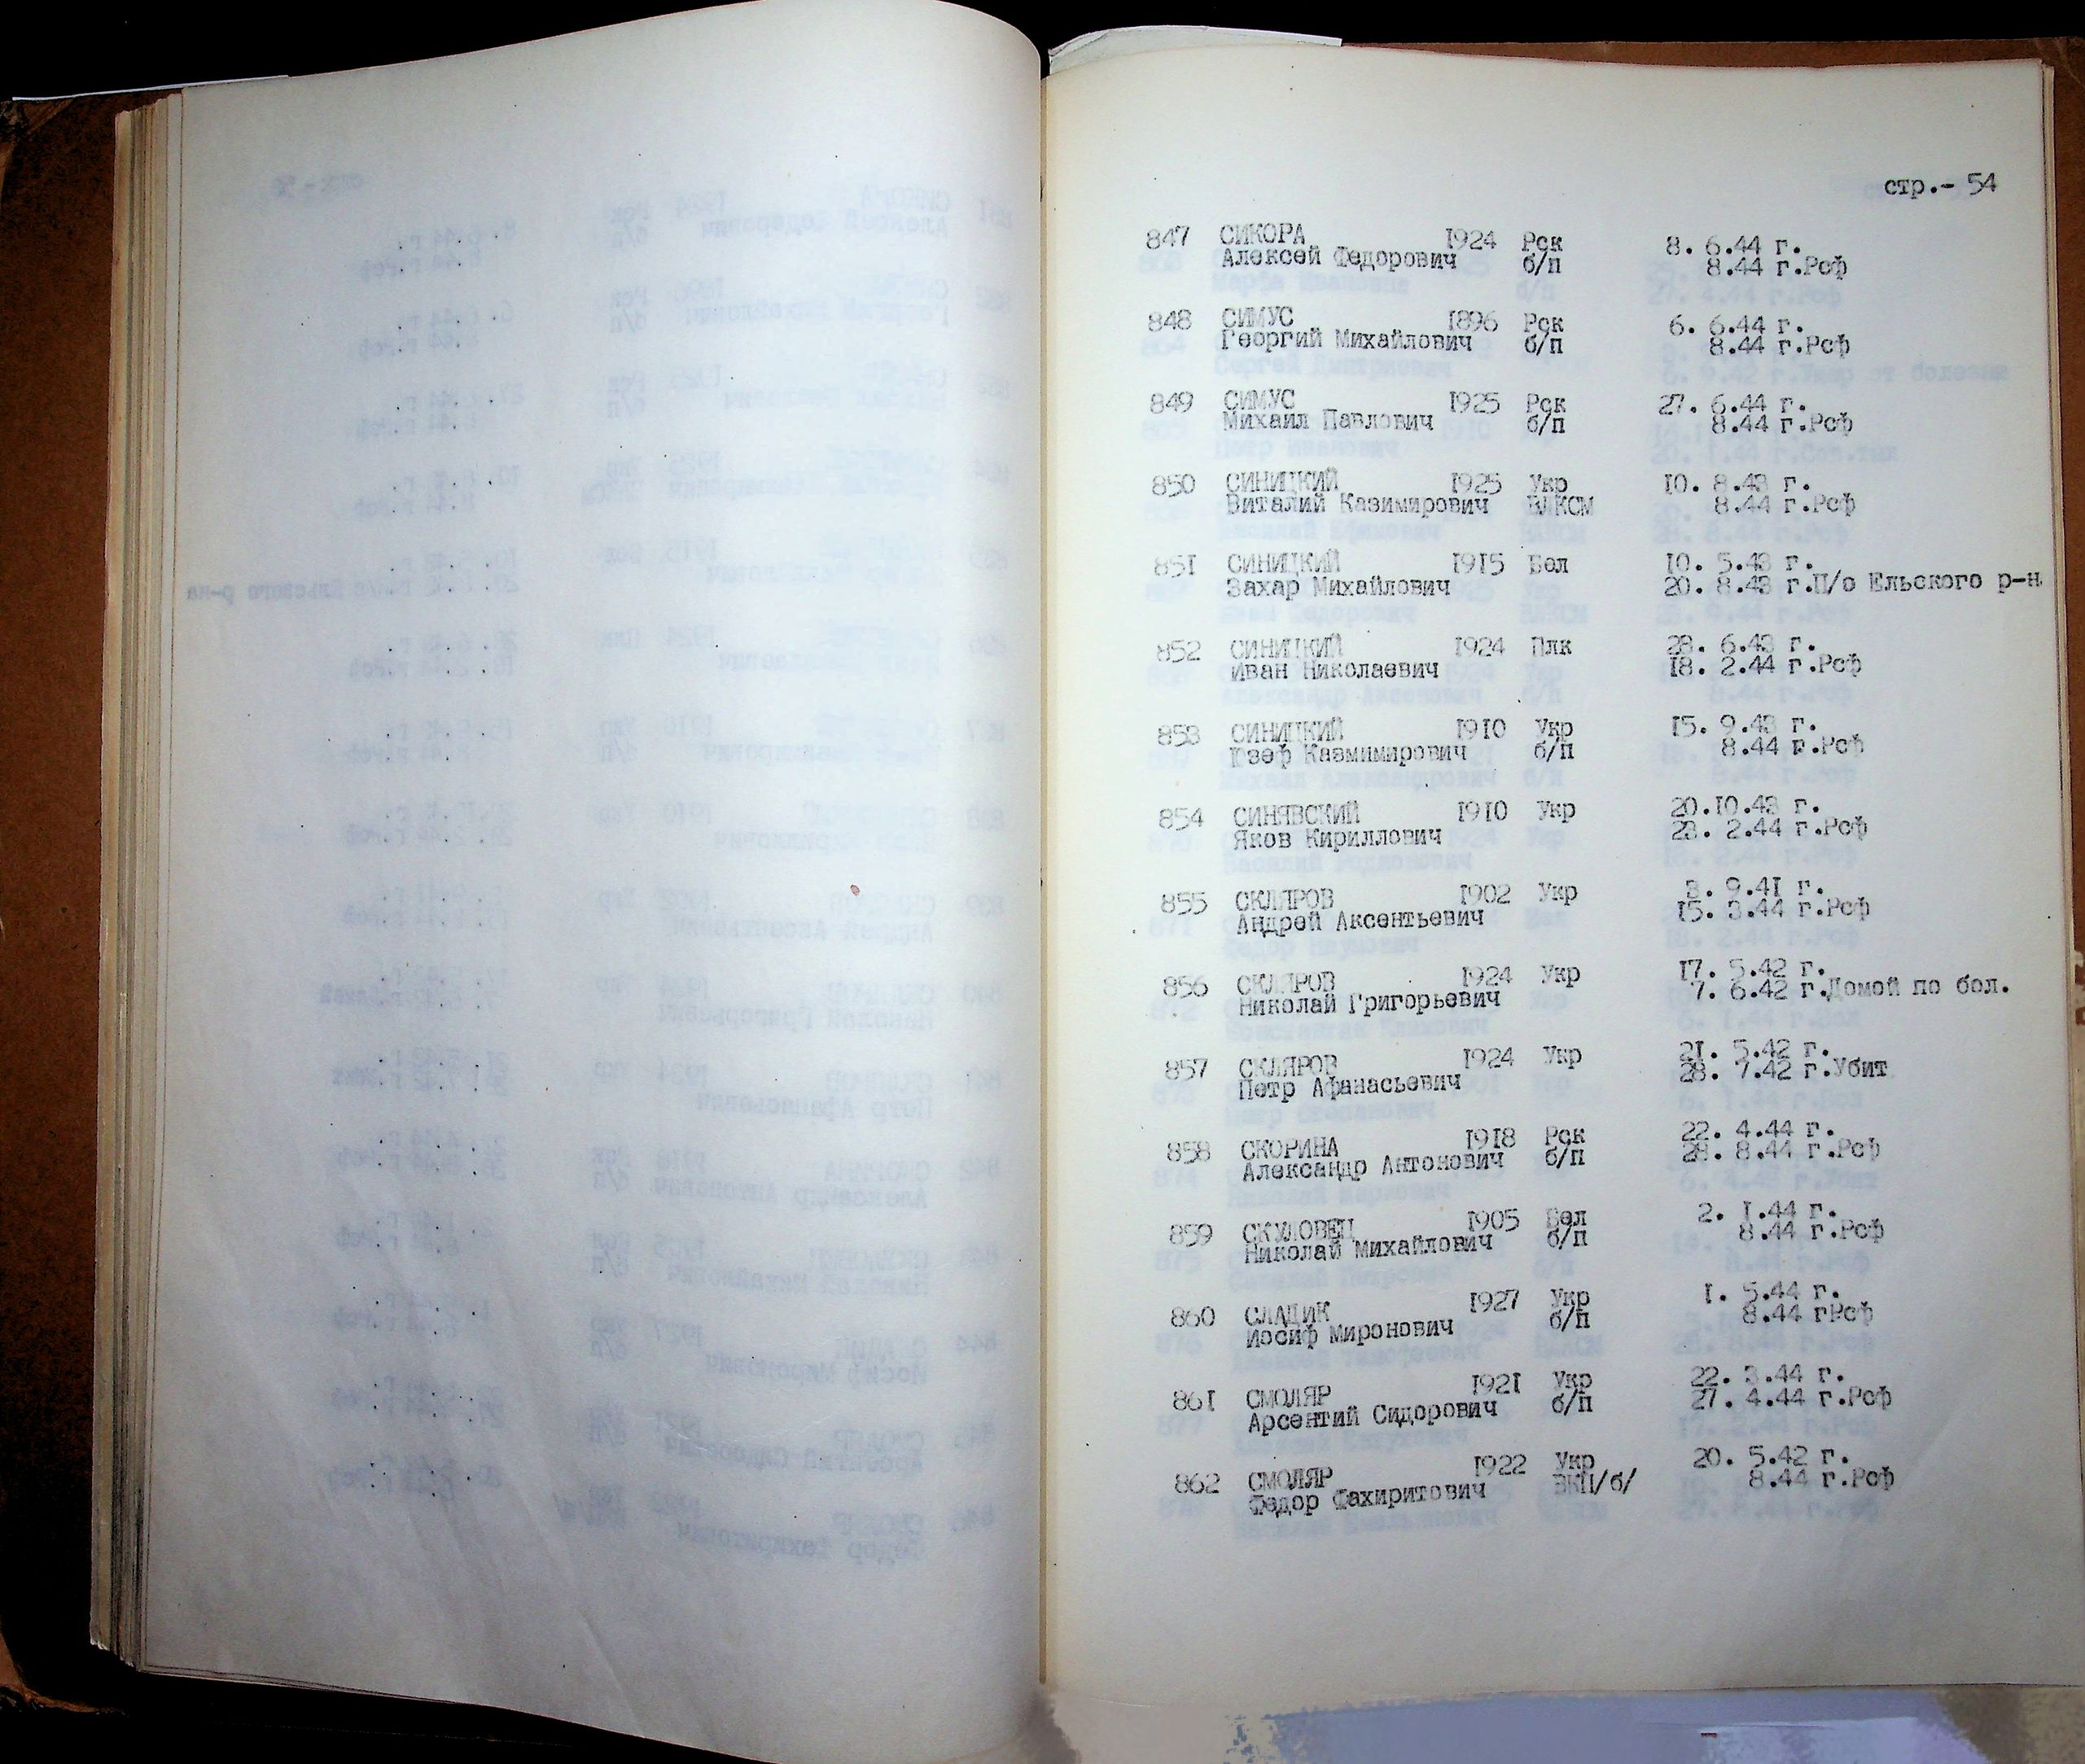 стр.- 54
847 СИКОРА 1924 Рск 8. 6.44 г.
Алексей Федорович б/п 8.44 г.Рсф
848 СИМУС 1896 Рск 6. 6.44 г.
Георгий Михайлович б/п 8.44 г.Рсф
849 СИМУС 1925 Рск 27. 6.44 г.
Михаил Павлович б/п 8.44 г.Рсф
850 СИНИЦКИЙ 1925 Укр 10. 8.43 г.
Виталий Казимирович ВЛКСМ 8.44 г.Рсф
851 СИНИЦКИЙ 1915 Бел 10. 5.43 г.
Захар Михайлович 20. 8.43 г.П/о Ельского р-н
852 СИНИЦКИЙ 1924 Плк 28. 6.43 г.
Иван Николаевич 18. 2.44 г.Рсф
853 СИНИЦКИЙ 1910 Укр 15. 9.43 г.
Юзеф Казмимирович б/п 8.44 г.Рсф
854 СИНЯВСКИЙ 1910 Укр 20.10.43 г.
Яков Кириллович 28. 2.44 г.Рсф
855 СКЛЯРОВ 1902 Укр 3. 9.41 г.
Андрей Аксентьевич 15. 3.44 г.Рсф
856 СКЛЯРОВ 1924 Укр 17. 5.42 г.
Николай Григорьевич 7. 6.42 г.Домой по бол.
857 СКЛЯРОВ 1924 Укр 21. 5.42 г.
Петр Афанасьевич 28. 7.42 г.Убит
858 СКОРИНА 1918 Рск 22. 4.44 г.
Александр Антонович б/п 28. 8.44 г.Рсф
859 СКУЛОВЕЦ 1905 Бел 2. 1.44 г.
Николай Михайлович б/п 8.44 г.Рсф
860 СЛАДИК 1927 Укр 1. 5.44 г.
Иосиф Миронович б/п 8.44 гРсф
861 СМОЛЯР 1921 Укр 22. 3.44 г.
Арсентий Сидорович б/п 27. 4.44 г.Рсф
862 СМОЛЯР 1922 Укр 20. 5.42 г.
Федор Фахиритович ВКП/б/ 8.44 г.Рсф